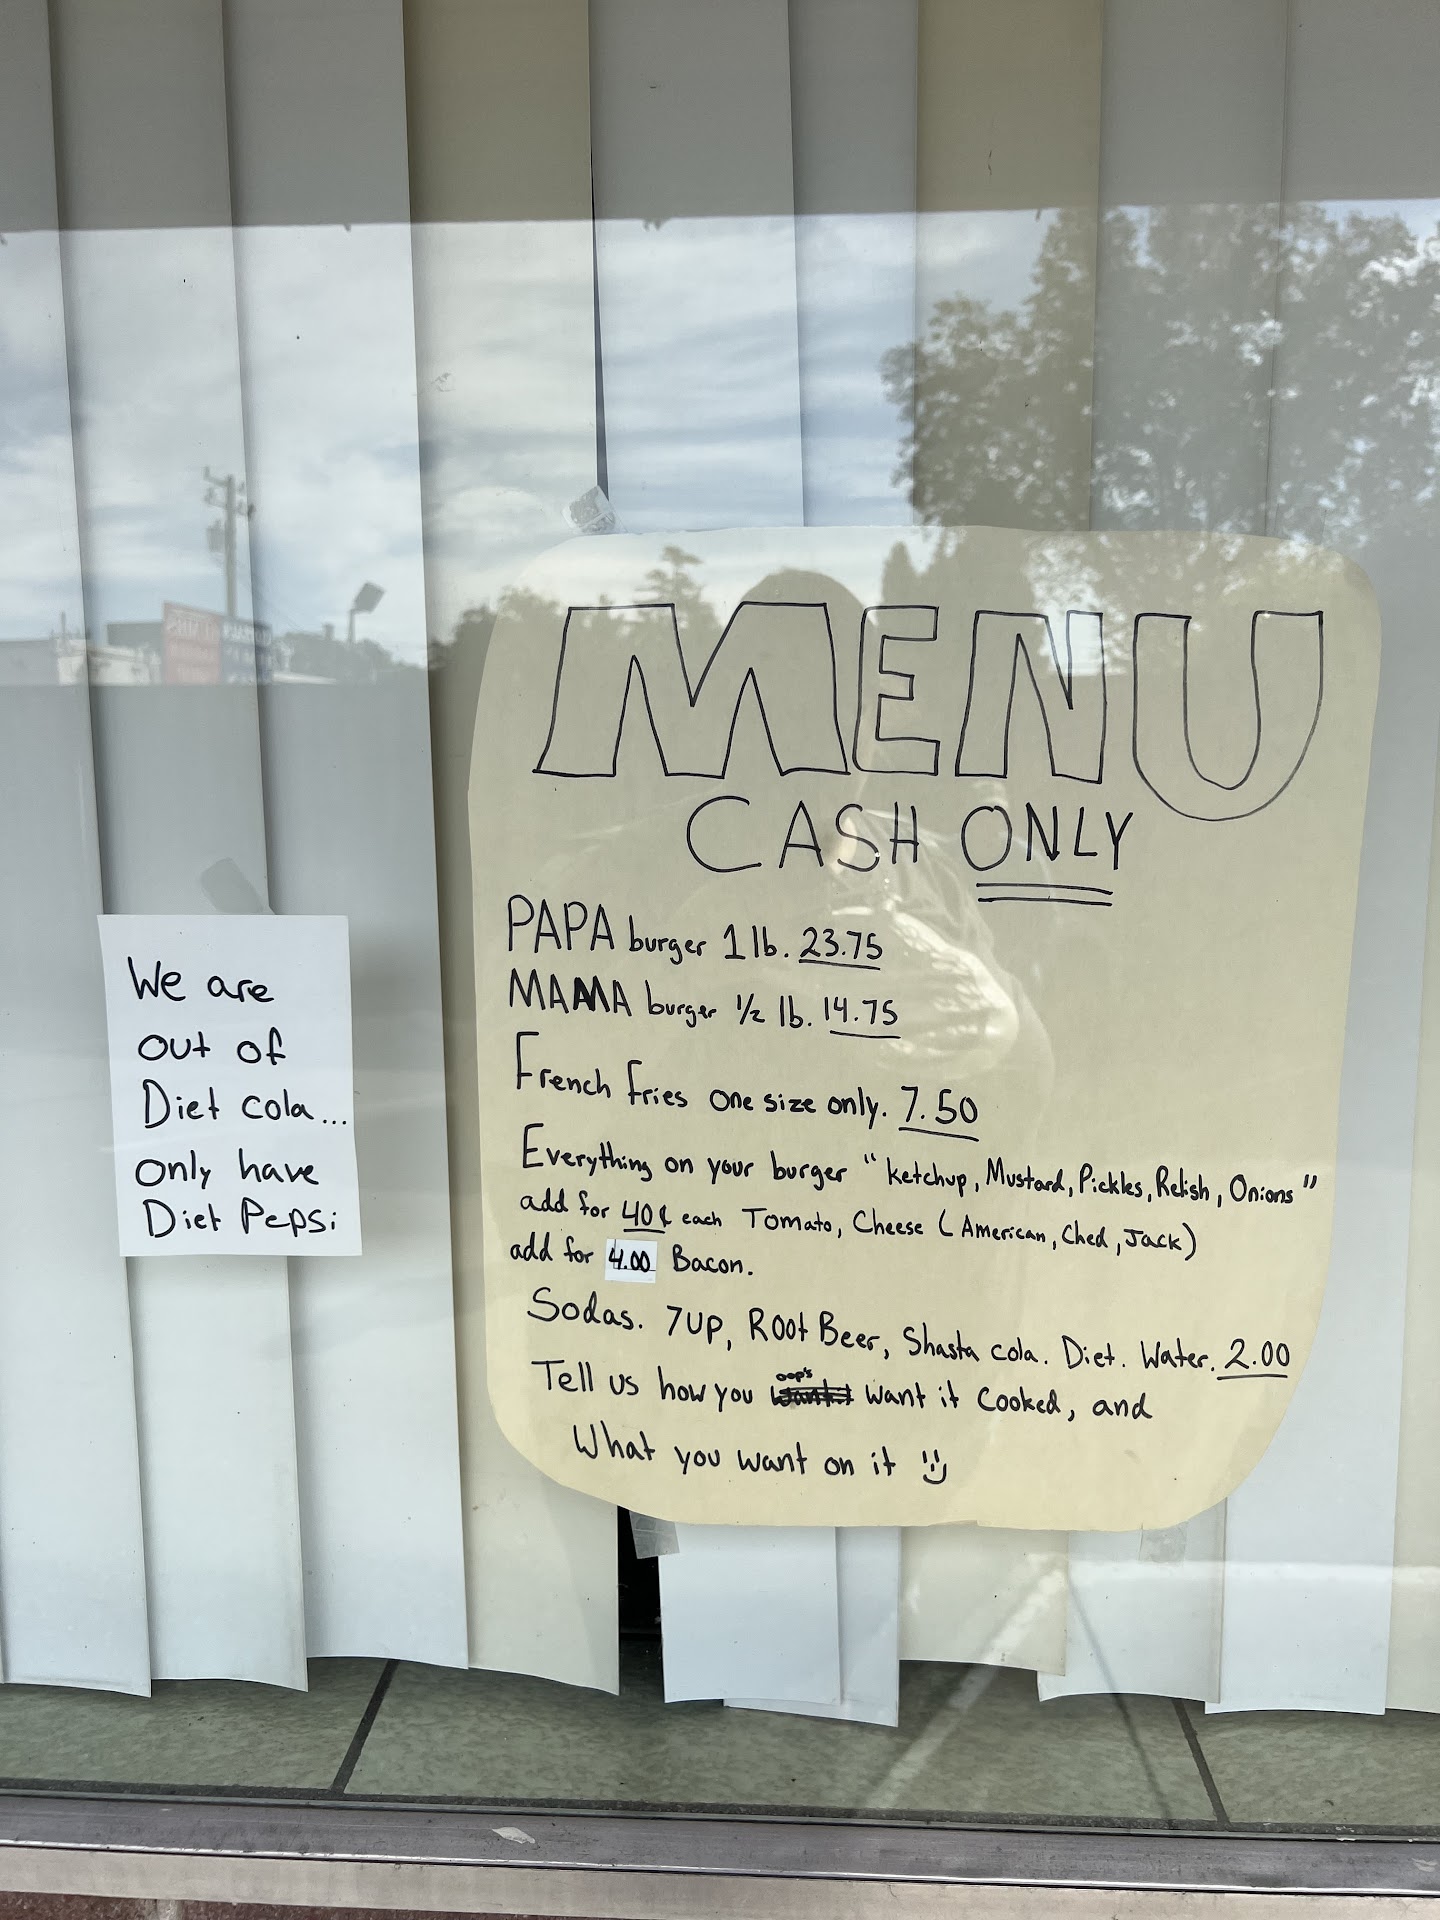 MENU
CASH ONLY
PAPA burger 1 lb. 23.75
MAMA burger 1/2 lb. 14.75
French fries one size only. 7.50
Everything on your burger "ketchup, Mustard, Pickles, Relish, Onions"
add for 40¢ each Tomato, Cheese (American, Ched, Jack)
add for 4.00 Bacon.
Sodas. 7UP, Root Beer, Shasta cola. Diet. Water. 2.00
Tell us how you oop's want it Cooked, and
What you want on it
We are
out of
Diet cola...
only have
Diet Pepsi